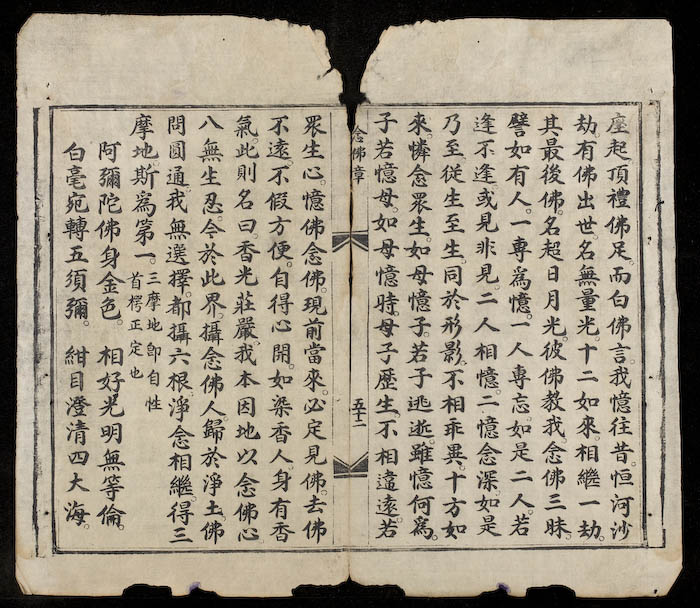 座起頂禮佛足。而白佛言。我憶往昔。恒河沙
劫。有佛出世。名無量光。十二如來。相繼一劫。
其最後佛。名超日月光。彼佛教我。念佛三昧。
譬如有人。一專為憶。一人專忘。如是二人。若
逢不逢。或見非見。二人相憶。二憶念深。如是
乃至。從生至生。同於形影。不相乖異。十方如
來。憐念眾生。如母憶子。若子逃逝。雖憶何為。
子若憶母。如母憶時。母子歷生。不相違遠。若
念佛章
五十二
眾生心。憶佛念佛。現前當來。必定見佛。去佛
不遠。不假方便。自得心開。如染香人。身有香
氣。此則名曰。香光莊嚴。我本因地。以念佛心。
入無生忍。今於此界。攝念佛人。歸於淨土。佛
問圓通。我無選擇。都攝六根。淨念相繼。得三
摩地。斯為第一。三摩地即自性
首楞正定也
阿彌陀佛身金色。 相好光明無等倫。
白毫宛轉五須彌。 紺目澄清四大海。